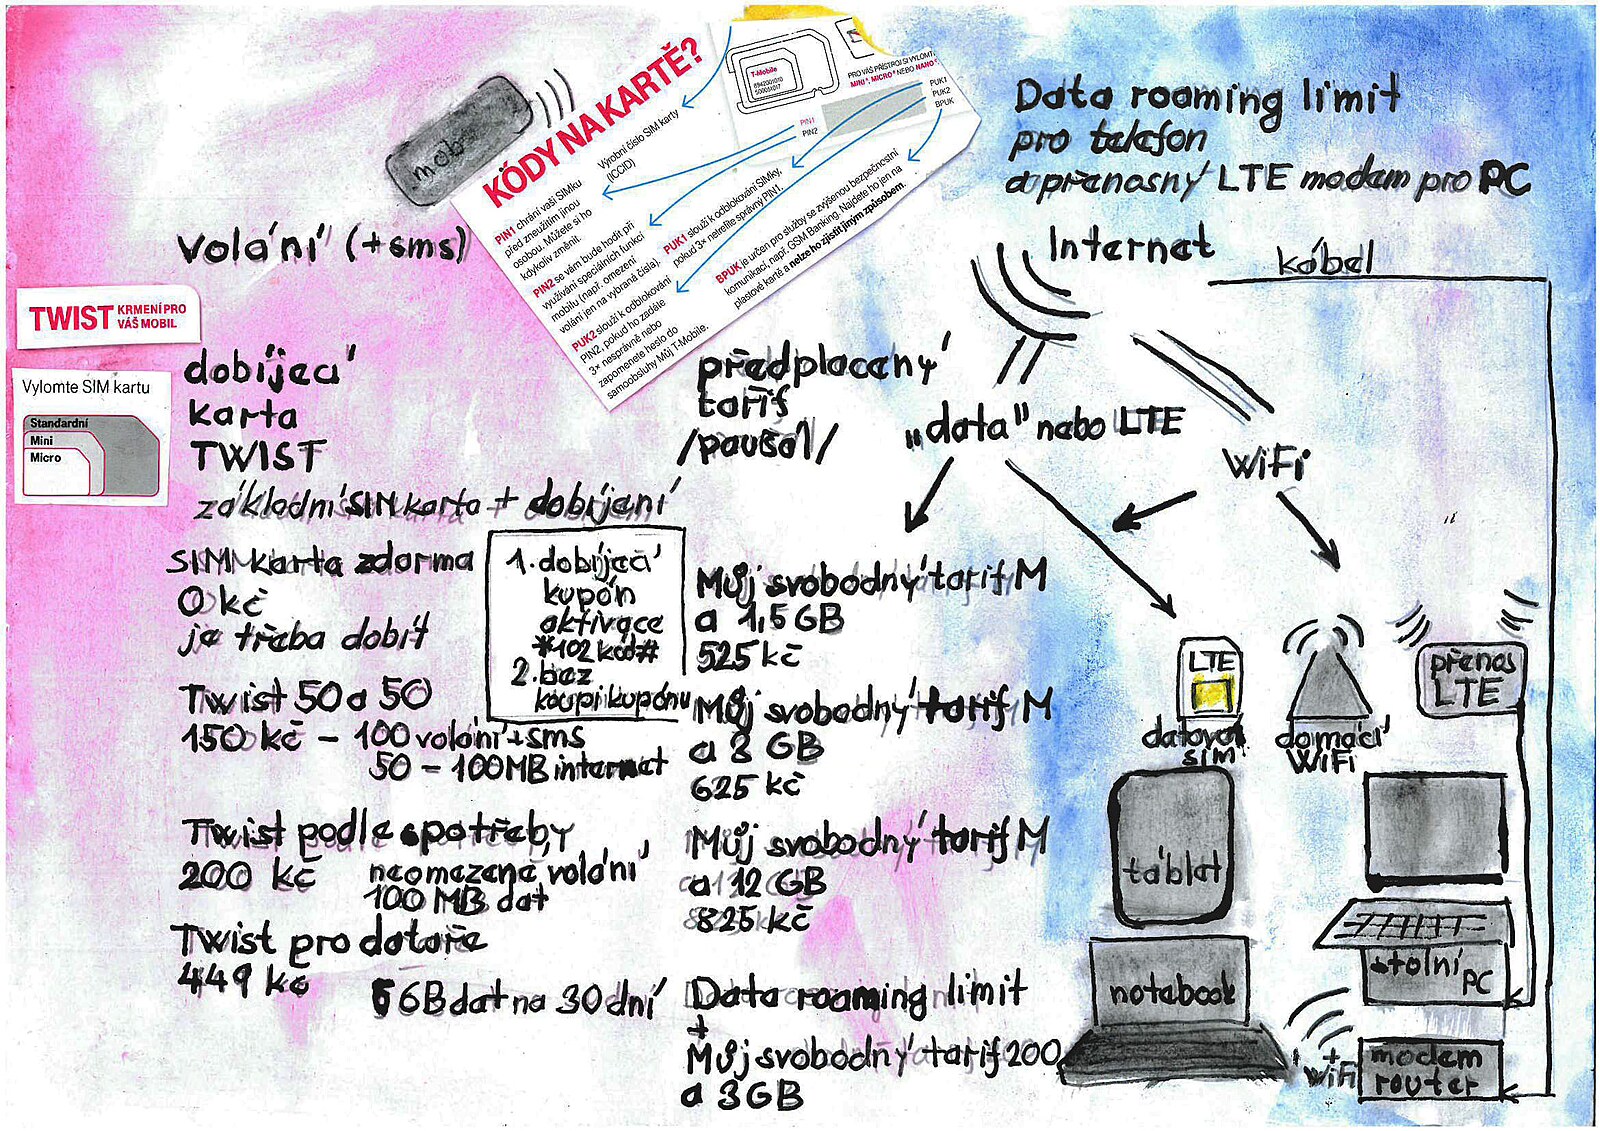 mobil
KÓDY NA KARTĚ?
Výrobní číslo SIM karty
(ICCID)
T-Mobile
PRO VÁŠ PŘÍSTROJ SI VYLOMTE
MINI*, MICRO* NEBO NANO*.
PUK1
PUK2
BPUK
PIN1
PIN2
PIN1 chrání vaši SIMku
před zneužitím jinou
osobou. Můžete si ho
kdykoliv změnit.
PIN2 se vám bude hodit při
využívání speciálních funkcí
mobilu (např. omezení
volání jen na vybraná čísla).
PUK2 slouží k odblokování
PIN2, pokud ho zadáte
3× nesprávně nebo
zapomenete heslo do
samoobsluhy Můj T-Mobile.
PUK1 slouží k odblokování SIMky,
pokud 3× netrefíte správný PIN1.
BPUK je určen pro služby se zvýšenou bezpečností
komunikací, např. GSM Banking. Najdete ho jen na
plastové kartě a nelze ho zjistit jiným způsobem.
Data roaming limit
pro telefon
a přenosný LTE modem pro PC
Volání (+sms)
Internet
kábel
TWIST KRMENÍ PRO
VÁŠ MOBIL
Vylomte SIM kartu
Standardní
Mini
Micro
dobíjecí
karta
TWIST
základní SIM karta + dobíjení
předplacený
tarif
/paušál/
„data" nebo LTE
WiFi
SIM karta zdarma
0 kč
je třeba dobít
1. dobíjecí
kupón
aktivace
*102 kód#
2. bez
koupi kupónu
Twist 50 a 50
150 kč - 100 volání+sms
50 - 100MB internet
Twist podle spotřeby
200 kč neomezené volání
100 MB dat
Twist pro dataře
449 kč
GB dat na 30 dní
Můj svobodný tarif M
a 1,5 GB
525 kč
Můj svobodný tarif M
a 3 GB
625 kč
Můj svobodný tarif M
a 12 GB
825 kč
Data roaming limit
+
Můj svobodný tarif 200
a 3GB
LTE
datová
sim
domácí
WiFi
přenos
LTE
táblet
notebook
stolní
PC
+
WiFi
modem
router